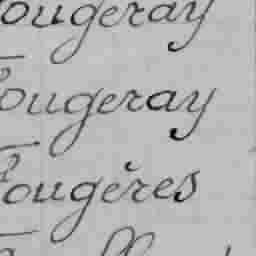 Fougeray
Fougeray
Fougères